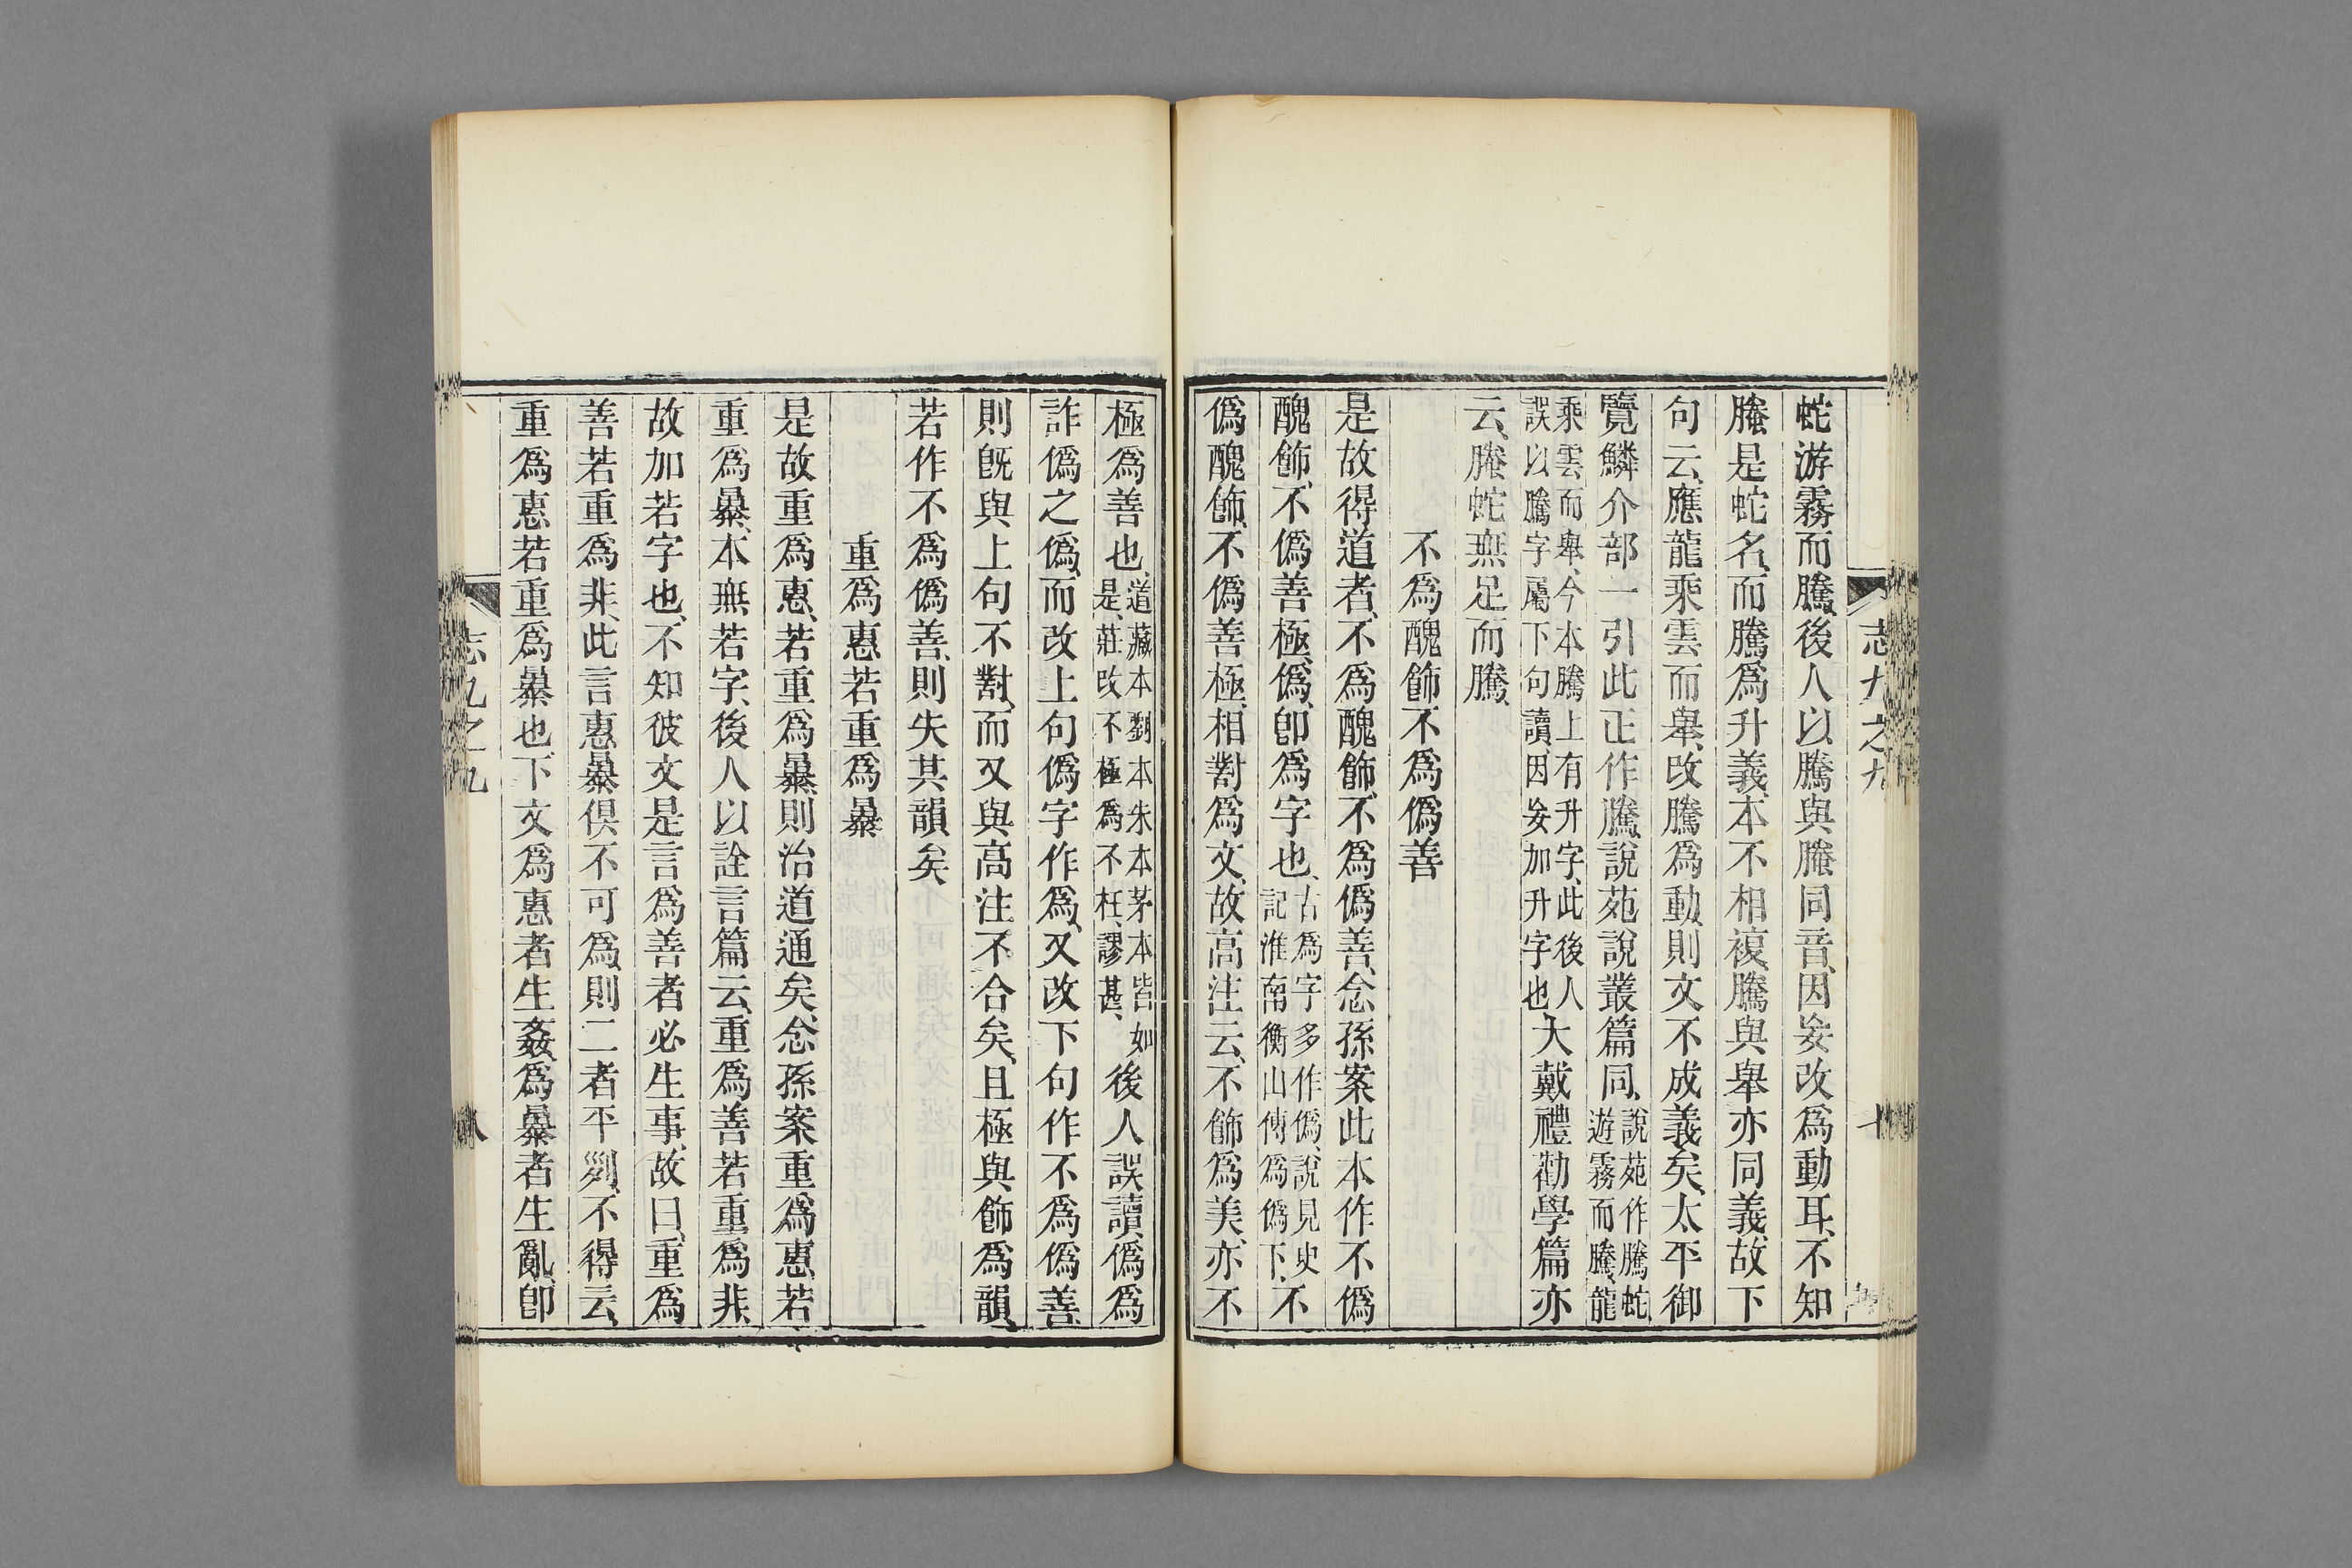 志九之九
蛇游霧而騰、後人以騰與螣同音、因妄改爲動耳、不知
螣是蛇名、而騰爲升義、本不相複、騰與舉亦同義、故下
句云、應龍乘雲而舉、改騰爲動、則文不成義矣、太平御
覽鱗介部一引此正作騰、說苑說叢篇同、說苑作騰蛇遊霧而騰、龍
乘雲而舉、今本騰上有升字、此後人誤以騰字屬下句讀因妄加升字也、大戴禮勸學篇亦
云、螣蛇無足而騰、
不爲醜飾不爲僞善
是故得道者、不爲醜飾、不爲僞善、念孫案此本作不僞
醜飾、不僞善極、僞、卽爲字也、古爲字多作僞、說見史記淮南衡山傳爲僞下、不
僞醜飾、不僞善極、相對爲文、故高注云、不飾爲美、亦不
極爲善也、道藏本劉本朱本茅本皆如是、莊改不極爲不枉、謬甚、後人誤讀僞爲
詐僞之僞、而改上句僞字作爲、又改下句作不爲僞善、
則旣與上句不對、而又與高注不合矣、且極與飾爲韻、
若作不爲僞善、則失其韻矣
重爲惠若重爲暴
是故重爲惠、若重爲暴、則治道通矣、念孫案重爲惠若
重爲暴、本無若字、後人以詮言篇云、重爲善若重爲非、
故加若字也、不知彼文是言爲善者必生事、故曰、重爲
善若重爲非、此言惠暴俱不可爲、則二者平列、不得云、
重爲惠若重爲暴也下文爲惠者生姦、爲暴者生亂、卽
志九之九
八